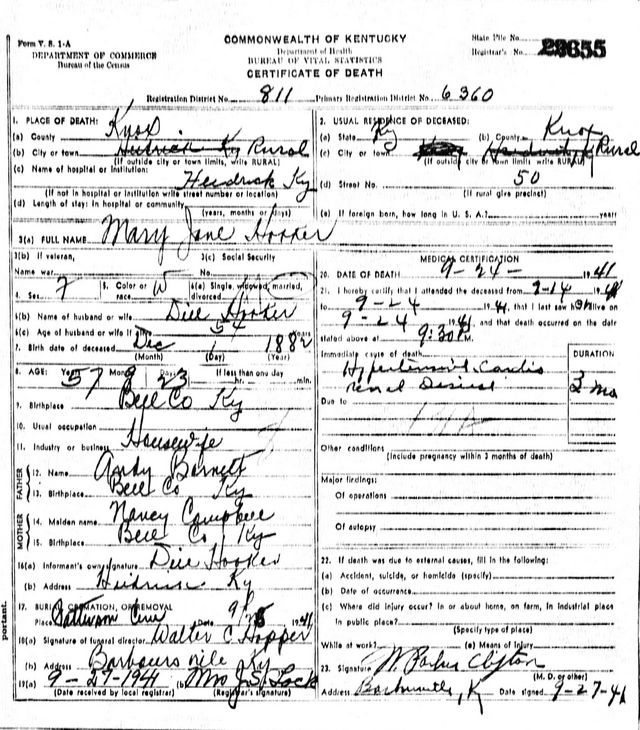 Form V. S. 1-A
DEPARTMENT OF COMMERCE
Bureau of the Census
COMMONWEALTH OF KENTUCKY
Department of Health
BUREAU OF VITAL STATISTICS
CERTIFICATE OF DEATH
State File No.
Registrar's No. 23655
Registration District No. 811 Primary Registration District No. 6360
1. PLACE OF DEATH:
(a) County Knox
(b) City or town Heidrick Ky Rural
(If outside city or town limits, write RURAL)
(c) Name of hospital or institution:
Heidrick Ky
(If not in hospital or institution write street number or location)
(d) Length of stay: In hospital or community
(years, months or days)
2. USUAL RESIDENCE OF DECEASED:
(a) State Ky (b) County Knox
(c) City or town Rural
(If outside city or town limits write RURAL)
(d) Street No. 50
(If rural give precinct)
(e) If foreign born, how long in U. S. A.? years
3(a) FULL NAME Mary Jane Hooker
3(b) If veteran,
Name war
3(c) Social Security
No.
4. Sex F
5. Color or race W
6(a) Single, widowed, married, divorced
6(b) Name of husband or wife Dill Hooker
6(c) Age of husband or wife if alive 54 Years
7. Birth date of deceased Dec 1 1882
(Month) (Day) (Year)
8. AGE: Years Months Days If less than one day
57 9 23 hr. min.
9. Birthplace Bell Co Ky
10. Usual occupation Housewife
11. Industry or business
FATHER
12. Name Andy Barnett
13. Birthplace Bell Co Ky
MOTHER
14. Maiden name Nancy Campbell
15. Birthplace Bell Co Ky
16(a) Informant's own signature Dill Hooker
(b) Address Heidrick Ky
17. BURIAL, CREMATION, OR REMOVAL
Place Patterson Cem Date 9/25 1941
18(a) Signature of funeral director Walter C Hopper
(b) Address Barboursville Ky
19(a) 9-27-1941 (b) Mrs J. S. Lock
(Date received by local registrar) (Registrar's signature)
MEDICAL CERTIFICATION
20. DATE OF DEATH 9-24- 1941
21. I hereby certify that I attended the deceased from 9-14 1941
to 9-24 1941, that I last saw her alive on
9-24 1941, and that death occurred on the date
stated above at 9:30 P M.
Immediate cause of death DURATION
Hypertensive Cardio
renal Disease 3 mo
Due to
Other conditions
(Include pregnancy within 3 months of death)
Major findings:
Of operations
Of autopsy
22. If death was due to external causes, fill in the following:
(a) Accident, suicide, or homicide (specify)
(b) Date of occurrence
(c) Where did injury occur? In or about home, on farm, in industrial place
In public place?
(Specify type of place)
While at work? (e) Means of Injury
23. Signature W. Parker Clifton
(M. D. or other)
Address Barbourville, Ky Date signed 9-27-41
portant.